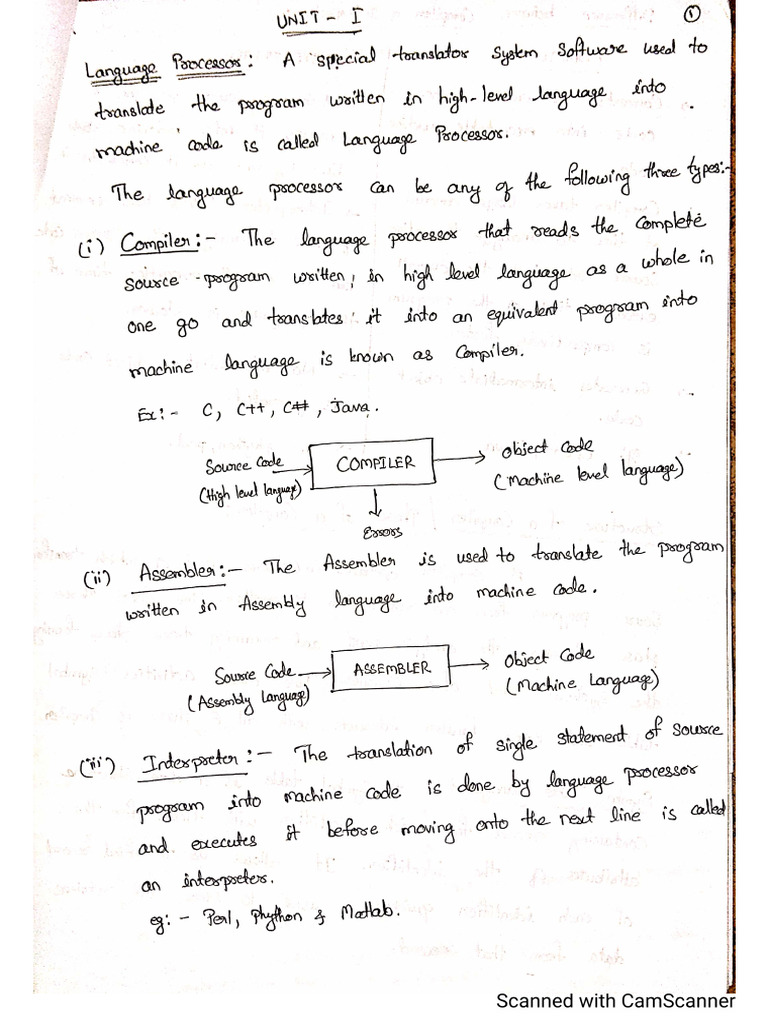 UNIT - I
1
Language Processor: A special translator system software used to
translate the program written in high-level language into
machine code is called Language Processor.
The language processor can be any of the following three types:-
(i) Compiler:- The language processor that reads the complete
source program written, in high level language as a whole in
one go and translates it into an equivalent program into
machine language is known as Compiler.
Ex:- C, C++, C#, Java.
Source Code
(High level language)
COMPILER
Object Code
(Machine level language)
Errors
(ii) Assembler:- The Assembler is used to translate the program
written in Assembly language into machine code.
Source Code
(Assembly Language)
ASSEMBLER
Object Code
(Machine Language)
(iii) Interpreter:- The translation of single statement of source
program into machine code is done by language processor
and executes it before moving onto the next line is called
an interpreter.
eg:- Perl, Phython & Matlab.
Scanned with CamScanner